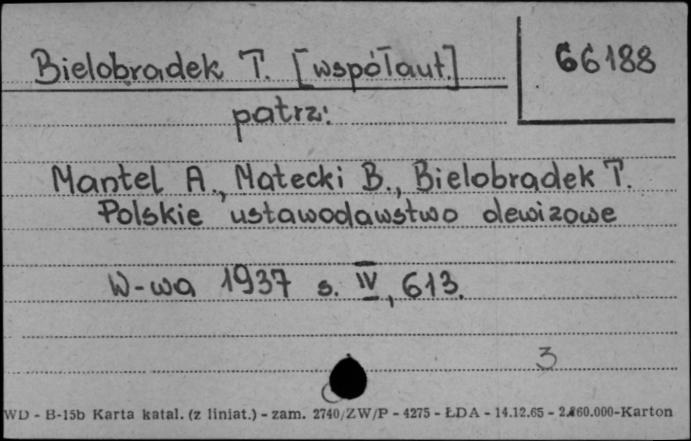 Bielobradek T. [współaut.] 66188
patrz:
Mantel A., Matecki B., Bielobradek T.
Polskie ustawodawstwo dewizowe
W-wa 1937 s. IV, 613.
3
WD - B-15b Karta katal. (z liniat.) - zam. 2740/ZW/P - 4275 - ŁDA - 14.12.65 - 2.860.000-Karton